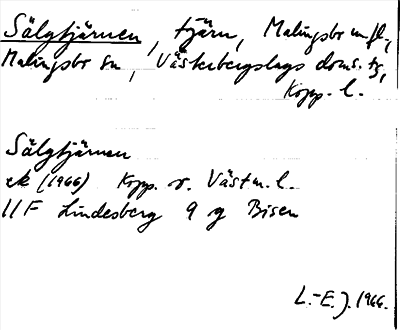 Sälgtjärnen, tjärn, Malingsbo m fl,
Malingsbo sn, Västerbergslags doms. tg,
Kopp. l.
Sälgtjärnen
ek (1966) Kopp. o. Västm. l.
11F Lindesberg 9 g Bisen
L.-E. J. 1966.